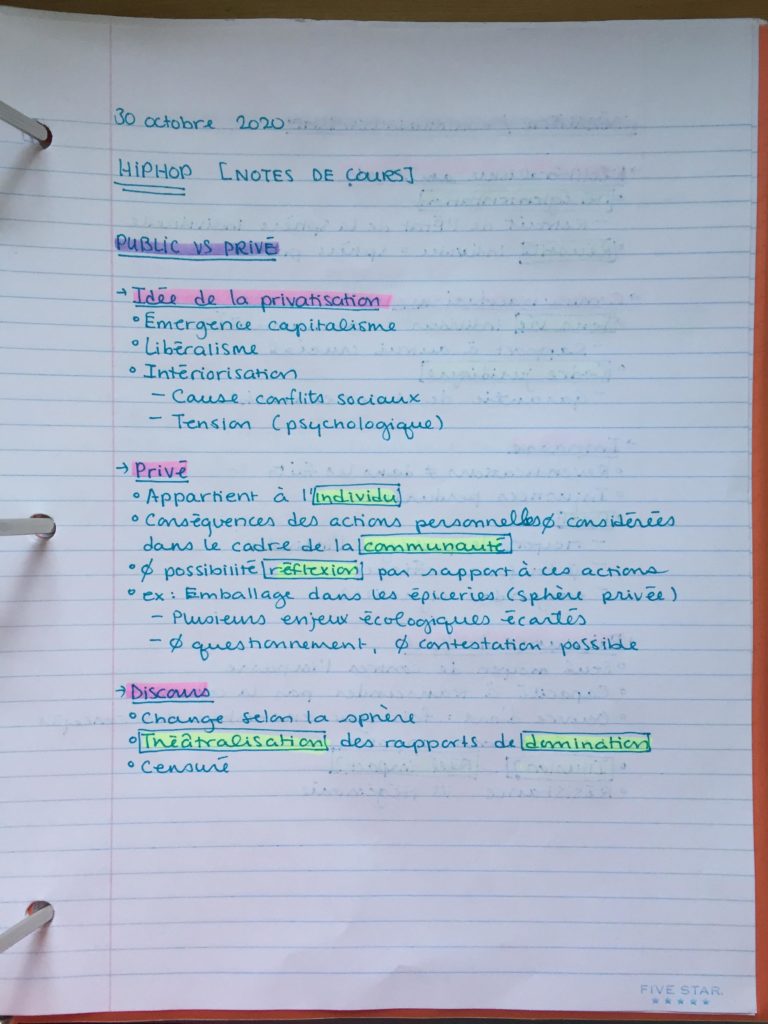 30 octobre 2020
HIPHOP [NOTES DE COURS]
PUBLIC VS PRIVÉ
→ Idée de la privatisation
° Émergence capitalisme
° Libéralisme
° Intériorisation
- Cause conflits sociaux
- Tension (psychologique)
→ Privé
° Appartient à l'individu
° Conséquences des actions personnelles ∅ considérées
dans le cadre de la communauté
° ∅ possibilité réflexion par rapport à ces actions
° ex: Emballage dans les épiceries (sphère privée)
- Plusieurs enjeux écologiques écartés
- ∅ questionnement, ∅ contestation possible
→ Discours
° Change selon la sphère
° Théâtralisation des rapports de domination
° Censuré
FIVE STAR.